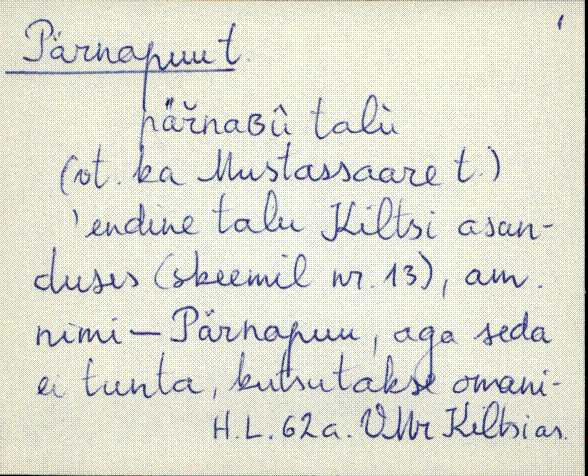 Pärnapuu t.
1
pär̆naʙû talù
(vt. ka Mustassaare t.)
'endine talu Kiltsi asan-
duses (skeemil nr. 13), am.
nimi – Pärnapuu, aga seda
ei tunta, kutsutakse omani-
H.L. 62a. VMr Kiltsi as.